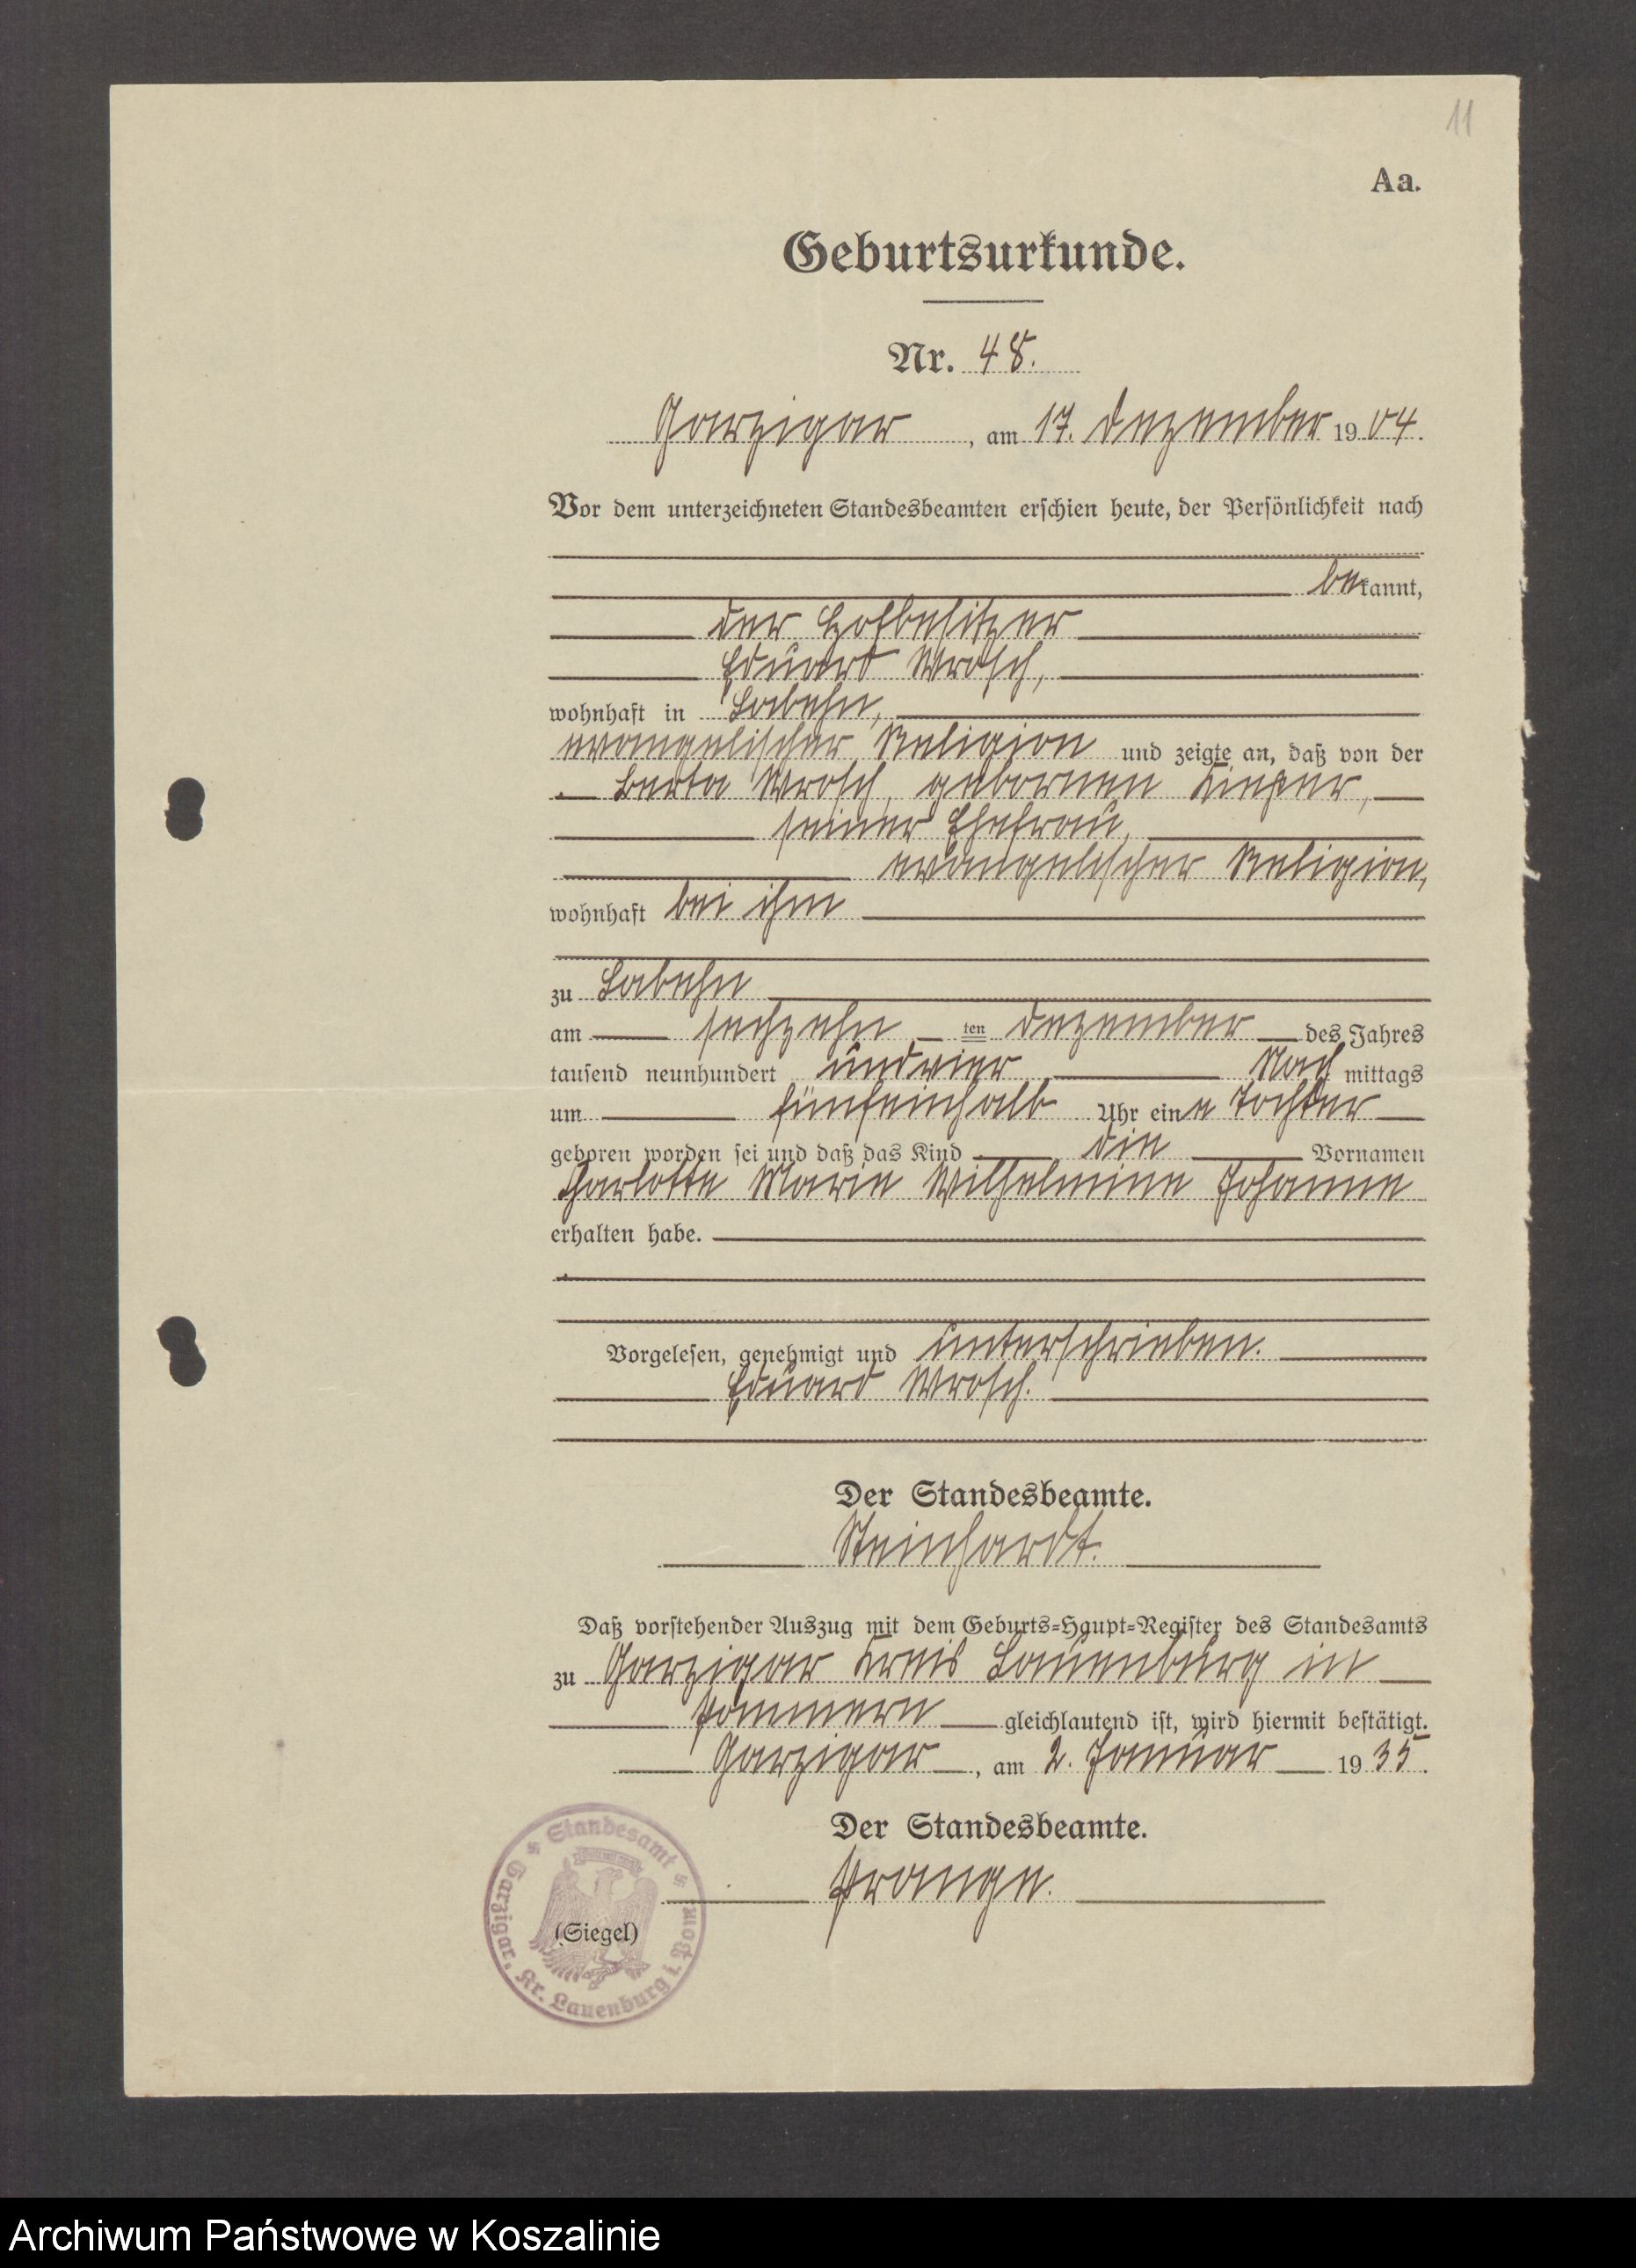 11
Aa.
Geburtsurkunde.
Nr. 48.
Garzigar, am 17. Dezember 1904.
Vor dem unterzeichneten Standesbeamten erschien heute, der Persönlichkeit nach
bekannt,
der Hofbesitzer
Eduard Wrosch,
wohnhaft in Labehn,
evangelischer Religion und zeigte an, daß von der
Berta Wrosch, gebornen
seiner Ehefrau,
evangelischer Religion,
wohnhaft bei ihm
zu Labehn
am sechzehn ten Dezember des Jahres
tausend neunhundert und vier Nachmittags
um fünfeinhalb Uhr eine Tochter
geboren worden sei und daß das Kind die Vornamen
Charlotte Marie Wilhelmine Johanne
erhalten habe.
Vorgelesen, genehmigt und unterschrieben.
Eduard Wrosch.
Der Standesbeamte.
Steinhardt.
Daß vorstehender Auszug mit dem Geburts-Haupt-Register des Standesamts
zu Garzigar Kreis Lauenburg in
Pommern gleichlautend ist, wird hiermit bestätigt.
Garzigar, am 2. Januar 1935.
Der Standesbeamte.
Prange.
(Siegel)
Standesamt
Garzigar, Kr. Lauenburg i. Pom
Archiwum Państwowe w Koszalinie